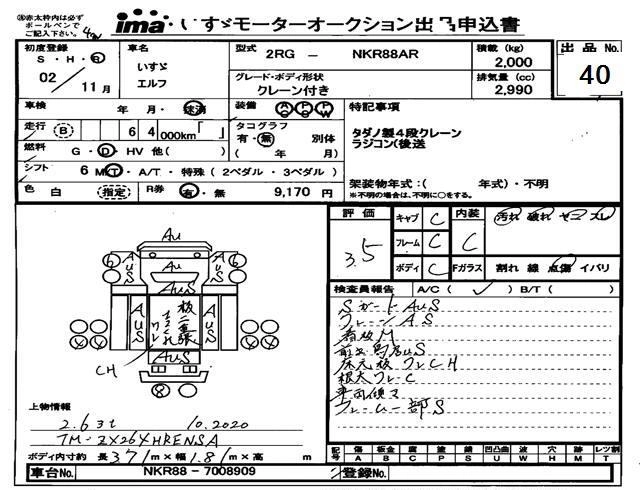 ※赤太枠内は必ず
ボールペンで
ご記入下さい。
ima いすゞモーターオークション出品申込書
初度登録 S・H・R 02 / 11月
車名 いすゞ エルフ
型式 2RG - NKR88AR
積載 (kg) 2,000
排気量 (cc) 2,990
出品No. 40
グレード・ボディ形状
クレーン付き
車検 年 月・抹消
装備
特記事項
走行 (B) 6 4 000km「 」
タコグラフ 有・無 別体
( 年 月)
タダノ製4段クレーン
ラジコン(後送
燃料 G・D・HV 他( )
シフト 6 MKT・A/T・特殊(2ペダル・3ペダル)
色 白 (指定) R券 有・無 9,170円
架装物年式:( 年式)・不明
※不明の場合は、不明に○をする。
評価 3.5
キャブ C
フレーム C
ボディ C
内装 C
汚れ 破れ ヤニ スレ
Fガラス 割れ 線 点傷 イバリ
検査員報告 A/C ( ✓ ) B/T ( )
SガードAuS
クレーンA.S
看板M
床元板ワレCH
根太ワレC
フレーム一部S
Au
Au
AuS
AuS
AuS
AuS
AuS
AuS
CH
上物情報
2.63t 10.2020
TM-ZX264HRENSA
ボディ内寸約 長 371 m×幅 1.81 m×高 m
記号 傷 A 板金 B 腐 C 塗 P 錆 S 凹凸曲 U 波 W 穴 H 歪 M レツ割 T
車台No. NKR88-7008909
登録No.